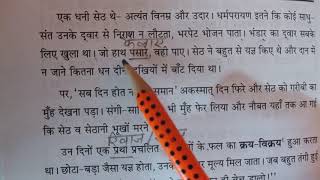 एक धनी सेठ थे- अत्यंत विनम्र और उदार। धर्मपरायण इतने कि कोई साधु-
संत उनके द्वार से निराश न लौटता, भरपेट भोजन पाता। भंडार का द्वार सबके
फैलाए
लिए खुला था। जो हाथ पसारे, वही पाए। सेठ ने बहुत से यज्ञ किए और दान में
न जाने कितना धन दीन दुखियों में बाँट दिया था।
पर, 'सब दिन होत न समान' अकस्मात् दिन फिरे और सेठ को गरीबी का
मुँह देखना पड़ा। संगी-सा ने भी मुँह फेर लिया और नौबत यहाँ तक आ गई
कि सेठ व सेठानी भूखों मरने
रिवाज
उन दिनों एक प्रथा प्रचलित के फल का क्रय-विक्रय हुआ करता
था। छोटा-बड़ा जैसा यज्ञ होता, मूल्य मिल जाता। जब बहुत तंगी हुई
बेच डालो।"